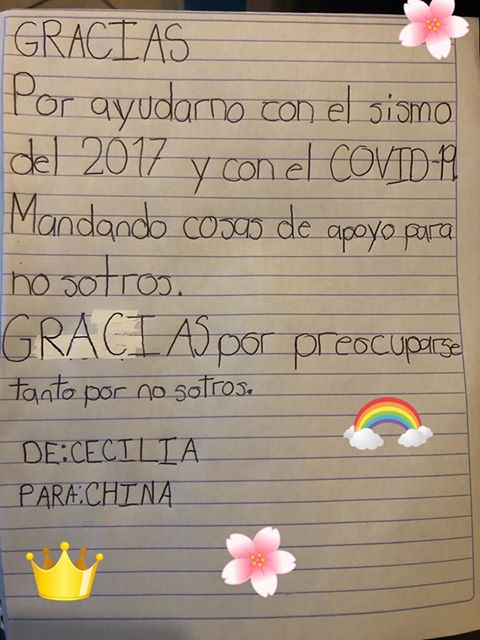 GRACIAS
Por ayudarno con el sismo
del 2017 y con el COVID-19
Mandando cosas de apoyo para
no sotros.
GRACIAS por preocuparse
tanto por no sotros.
DE:CECILIA
PARA:CHINA